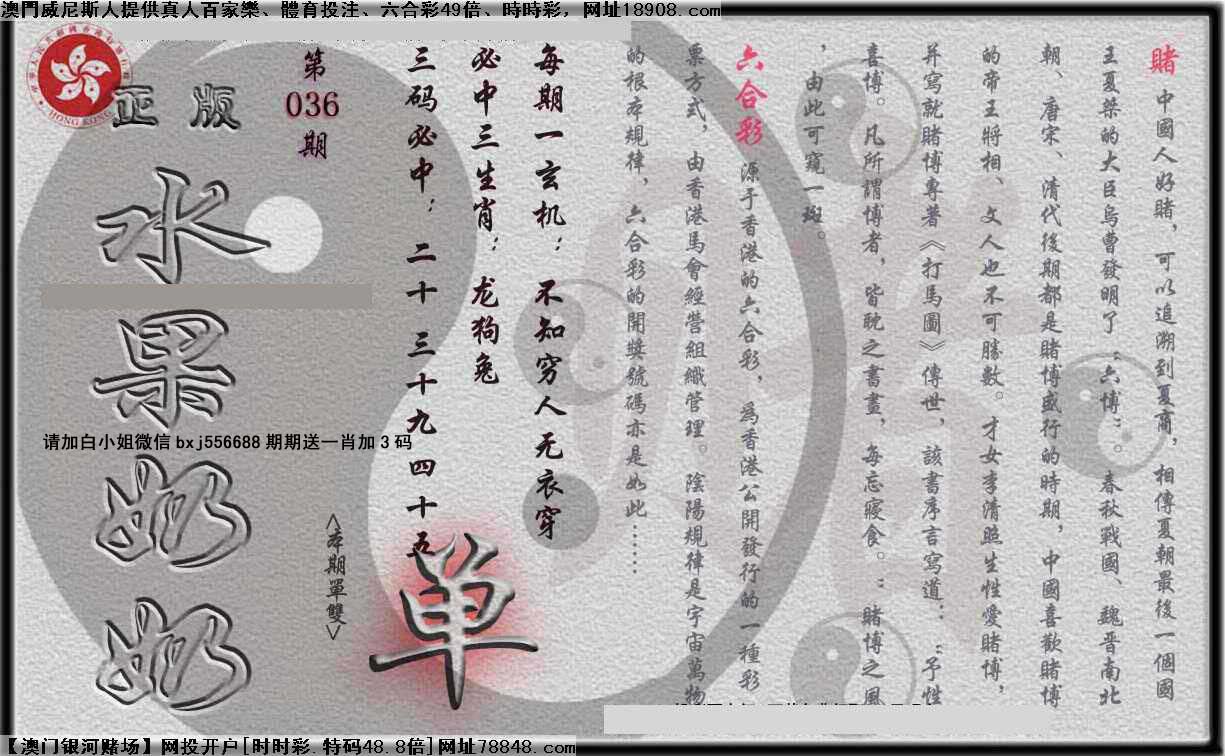 澳門威尼斯人提供真人百家樂、體育投注、六合彩49倍、時時彩，网址18908.com
HONG KONG
正版
水果奶奶
第
036
期
请加白小姐微信 bxj556688 期期送一肖加 3 码
<本期單雙>
单
賭 中國人好賭，可以追溯到夏商，相傳夏朝最後一個國
王夏桀的大臣烏曹發明了“六博”。春秋戰國、魏晋南北
朝、唐宋、清代後期都是賭博盛行的時期，中國喜歡賭博
的帝王將相、文人也不可勝數。才女李清照生性愛賭博，
并寫就賭博專著《打馬圖》傳世，該書序言寫道：“予性
喜博。凡所謂博者，皆耽之書畫，每忘寢食。”賭博之風
，由此可窺一斑。
六合彩 源于香港的六合彩，爲香港公開發行的一種彩
票方式，由香港馬會經營組織管理。陰陽規律是宇宙萬物
的根本規律，六合彩的開獎號碼亦是如此……
每期一玄机：不知穷人无衣穿
必中三生肖：龙狗兔
三码必中：二十 三十九 四十五
【澳门银河赌场】网投开户[时时彩.特码48.8倍]网址78848.com